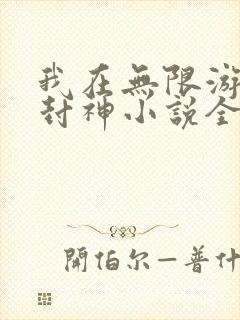 我在無限游
封神小說全
開伯尔—普什